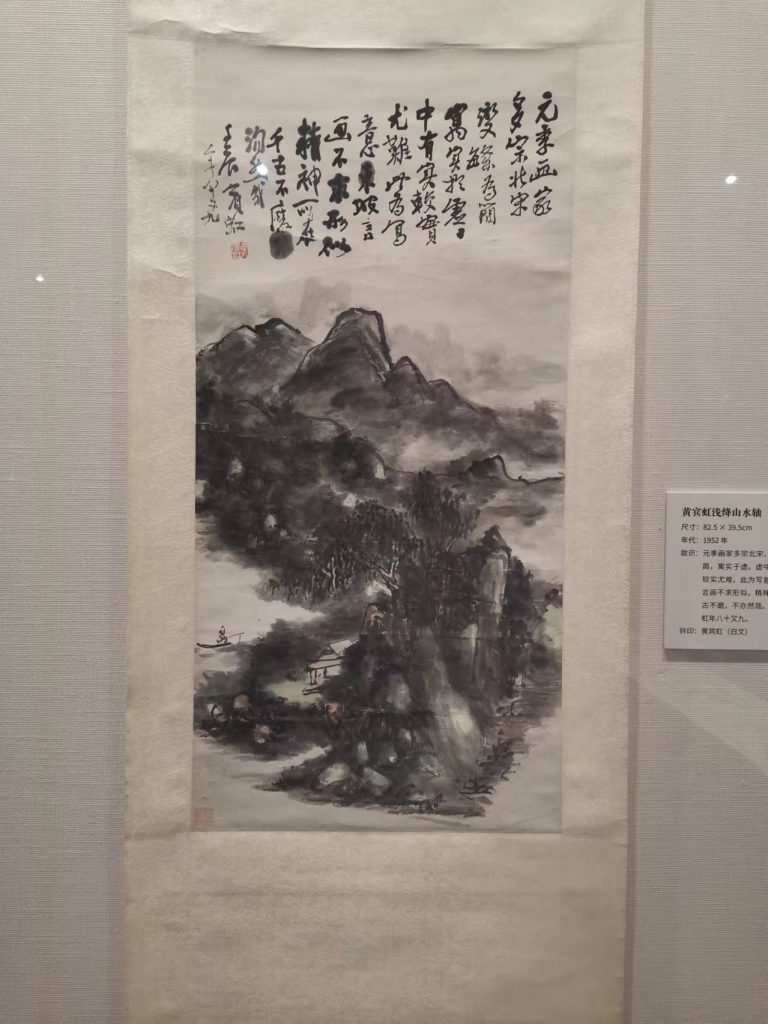 元季画家
多宗北宋
變繁為簡
寓实於虚〻
中有实較實
尤難此為寫
意東坡言
画不求形似
精神所在
千古不磨
然哉
壬辰賓虹
年八十又九
黄宾虹浅绛山水轴
尺寸：82.5 × 39.5cm
年代：1952 年
款识：元季画家多宗北宋，
简，寓实于虚。虚中
较实尤难，此为写意
言画不求形似，精神
古不磨，不亦然哉。
虹年八十又九。
钤印：黄宾虹（白文）